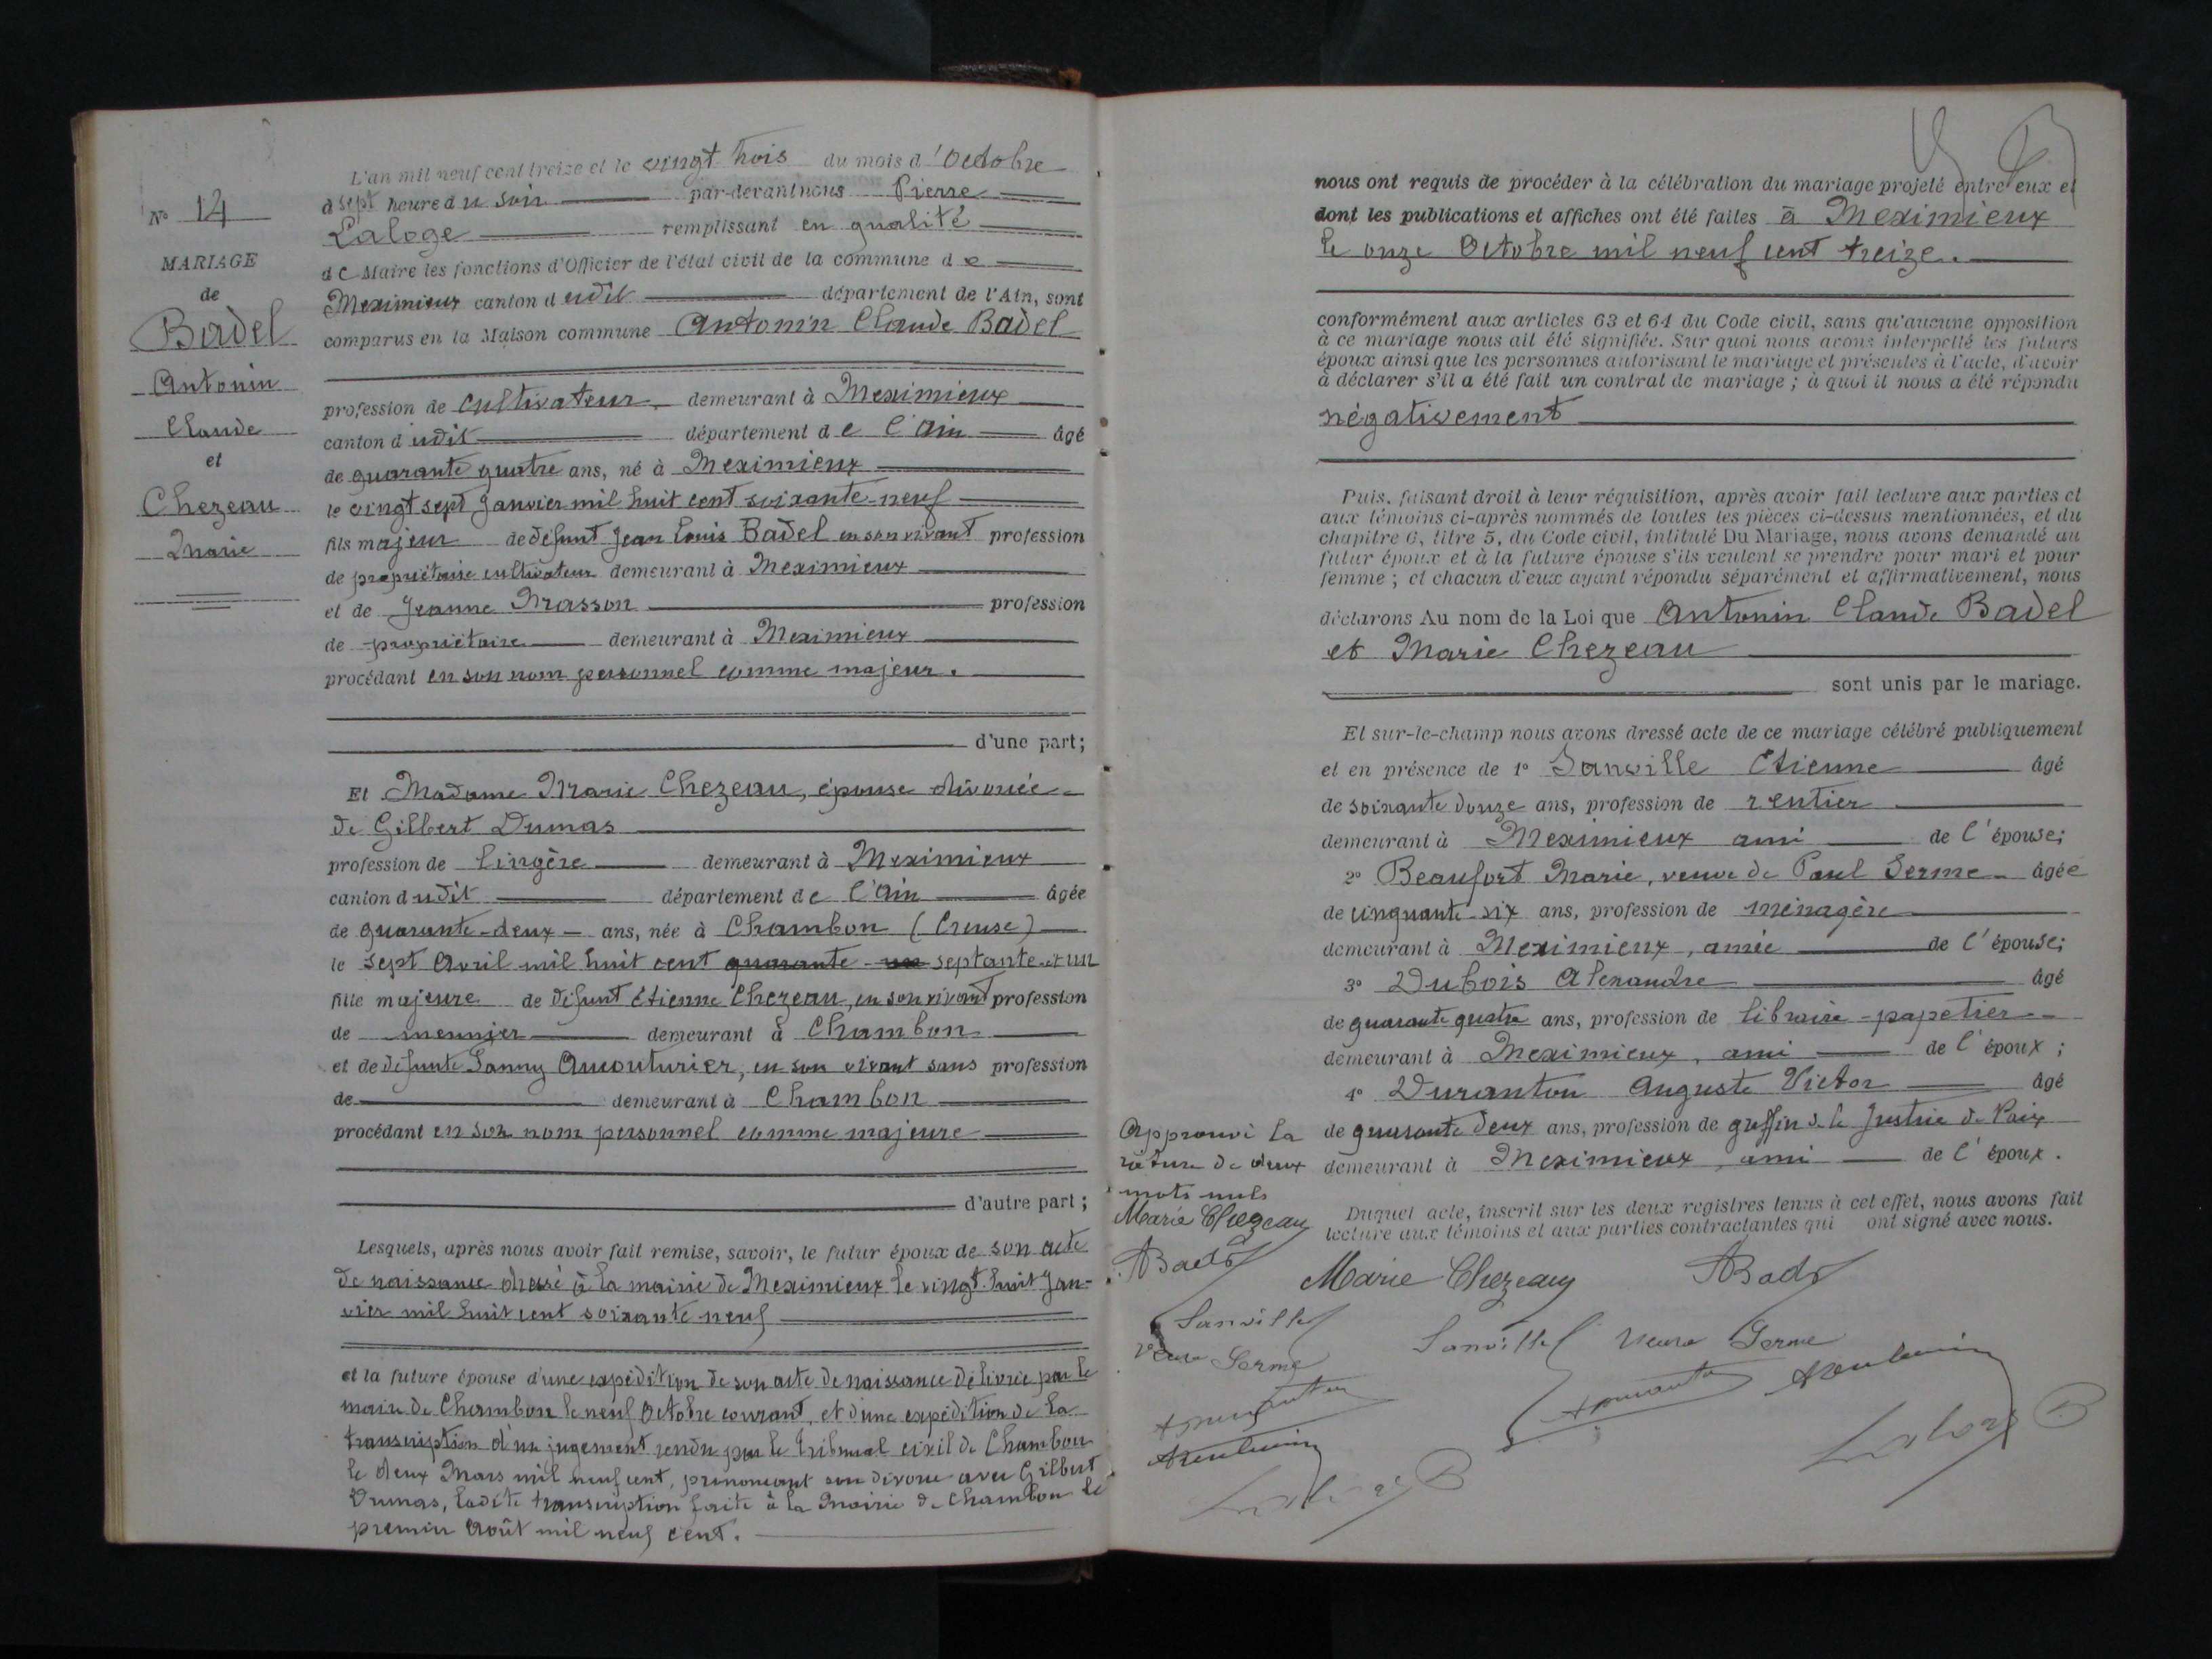 N° 14
MARIAGE
de
Badel
Antonin
Claude
et
Chezeau
Marie
L'an mil neuf cent treize et le vingt trois du mois d'Octobre
à sept heure du soir par-devant nous Pierre
Laloge remplissant en qualité
de Maire les fonctions d'Officier de l'état civil de la commune de
Meximieux canton dudit département de l'Ain, sont
comparus en la Maison commune Antonin Claude Badel
profession de cultivateur demeurant à Meximieux
canton dudit département de l'Ain âgé
de quarante quatre ans, né à Meximieux
le vingt sept Janvier mil huit cent soixante-neuf
fils majeur de défunt Jean Louis Badel en son vivant profession
de propriétaire cultivateur demeurant à Meximieux
et de Jeanne Brasson profession
de propriétaire demeurant à Meximieux
procédant en son nom personnel comme majeur.
d'une part;
Et Madame Marie Chezeau, épouse divorcée
de Gilbert Dumas
profession de lingère demeurant à Meximieux
canton dudit département de l'Ain âgée
de quarante-deux ans, née à Chambon (Creuse)
le sept Avril mil huit cent quarante-un septante et un
fille majeure de défunt Etienne Chezeau, en son vivant profession
de meunier demeurant à Chambon
et de défunte Fanny Aucouturier, en son vivant sans profession
de demeurant à Chambon
procédant en son nom personnel comme majeure
d'autre part;
Lesquels, après nous avoir fait remise, savoir, le futur époux de son acte
de naissance dressé à la mairie de Meximieux le vingt-huit Jan-
vier mil huit cent soixante neuf
et la future épouse d'une expédition de son acte de naissance délivrée par le
maire de Chambon le neuf Octobre courant, et d'une expédition de la
transcription d'un jugement rendu par le tribunal civil de Chambon
le deux Mars mil neuf cent, prononçant son divorce avec Gilbert
Dumas, ladite transcription faite à la Mairie de Chambon le
premier Août mil neuf cent.
nous ont requis de procéder à la célébration du mariage projeté entre eux et
dont les publications et affiches ont été faites à Meximieux
le onze Octobre mil neuf cent treize.
conformément aux articles 63 et 64 du Code civil, sans qu'aucune opposition
à ce mariage nous ait été signifiée. Sur quoi nous avons interpellé les futurs
époux ainsi que les personnes autorisant le mariage et présentes à l'acte, d'avoir
à déclarer s'il a été fait un contrat de mariage; à quoi il nous a été répondu
négativement
Puis, faisant droit à leur réquisition, après avoir fait lecture aux parties et
aux témoins ci-après nommés de toutes les pièces ci-dessus mentionnées, et du
chapitre 6, titre 5, du Code civil, intitulé Du Mariage, nous avons demandé au
futur époux et à la future épouse s'ils veulent se prendre pour mari et pour
femme; et chacun d'eux ayant répondu séparément et affirmativement, nous
déclarons Au nom de la Loi que Antonin Claude Badel
et Marie Chezeau
sont unis par le mariage.
Et sur-le-champ nous avons dressé acte de ce mariage célébré publiquement
et en présence de 1° Sanville Etienne âgé
de soixante douze ans, profession de rentier
demeurant à Meximieux ami de l'épouse;
2° Beaufort Marie, veuve de Paul Serme âgée
de cinquante-six ans, profession de ménagère
demeurant à Meximieux, amie de l'épouse;
3° Dubois Alexandre âgé
de quarante quatre ans, profession de libraire-papetier
demeurant à Meximieux, ami de l'époux;
4° Duranton Auguste Victor âgé
de quarante deux ans, profession de greffier de la Justice de Paix
demeurant à Meximieux, ami de l'époux.
Duquel acte, inscrit sur les deux registres tenus à cet effet, nous avons fait
lecture aux témoins et aux parties contractantes qui ont signé avec nous.
Approuvé la
rature de deux
mots nuls
Marie Chezeau
ABadel
Sanville
Veuve Serme
Marie Chezeau ABadel
Sanville Veuve Serme